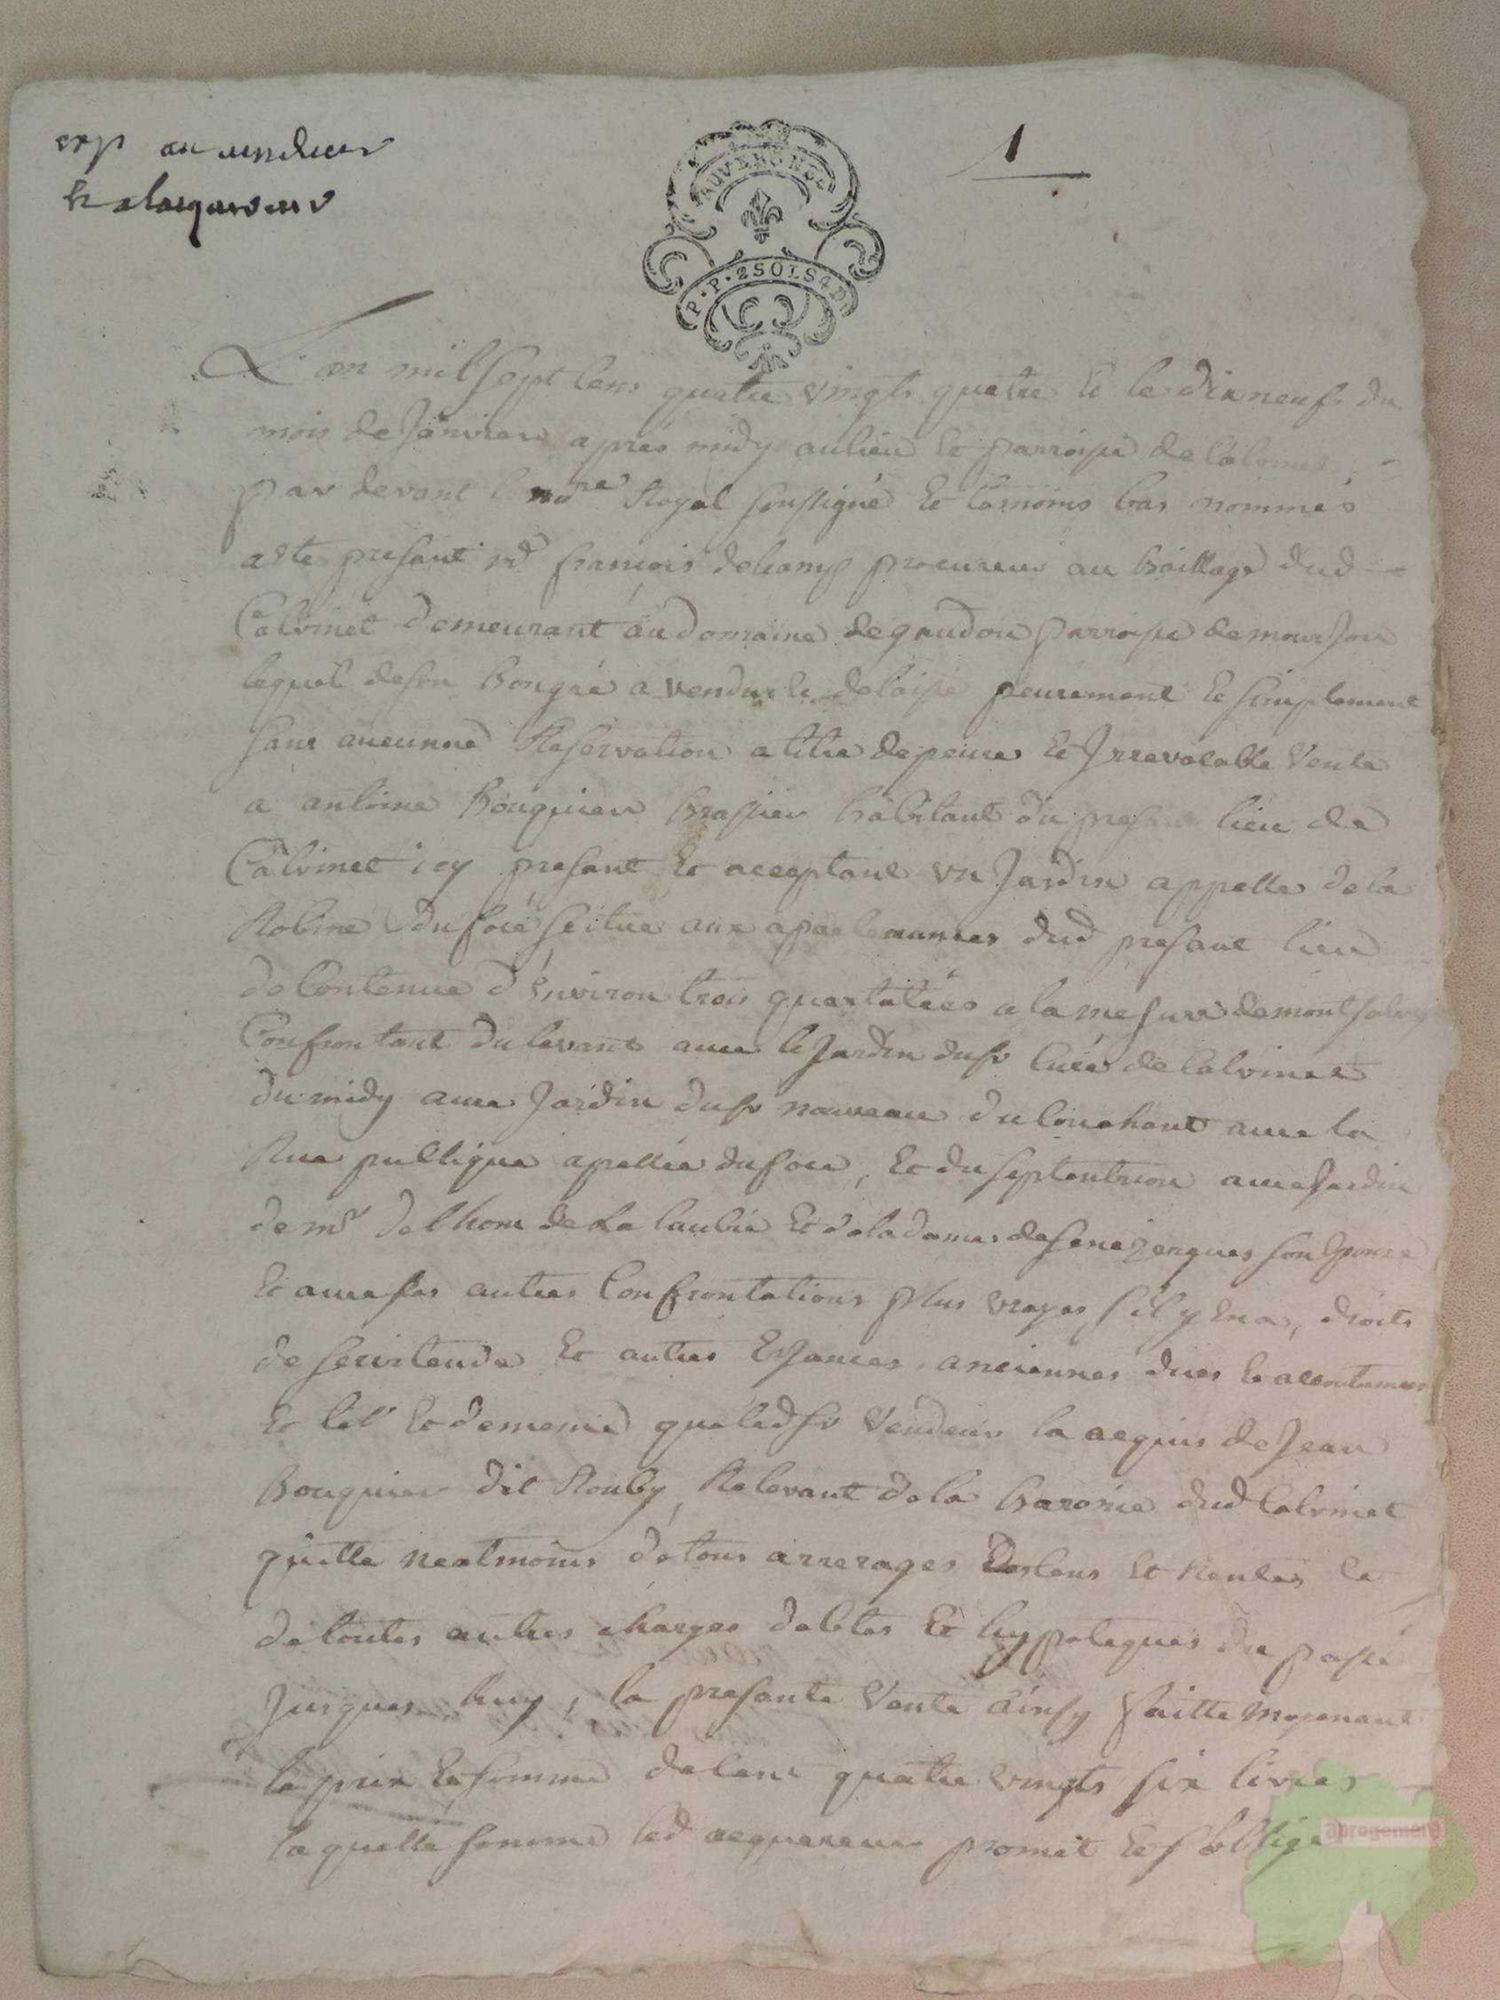 exp au vendeur
et a lacquereur
1
AUVERGNE
P. P. 2 SOLS 4 D
L'an mil sept cens quatre vingts quatre et le dix neuf du
mois de Janvier apres midy au lieu et parroisse de Calvinet
par devant le no.re Royal soussigné et temoins bas nommés
a este presant francois delcamp procureur au baillage dud
Calvinet demeurant au domaine de gaudou parroisse de mourjou
lequel de son bongré a vendu et delaissé peurement et simplement
sans aucunne Reservation a titre de peure et Irrevocable Vente
a antoine Bouquier brassier habitant du presant lieu de
Calvinet icy presant et aceptant un Jardin appelle de la
Robine du foir scitue aux apartenances dud presant lieu
de Contenue d'environ trois quartatées a la mesure de montsalvy
Confrontant du levant avec le Jardin du sr Curé de Calvinet
du midy avec Jardin du sr nouveau du Couchant avec la
Rue publique apellée du foir, et du septentrion avec Jardin
de mr delhom de La laubie et de la dame de senezergues son Epouse
et avec ses autres Confrontations plus vrayes s'il y en a, droits
de servitude et autres Essances anciennes dues et acoutumees
et tel et de meme que led sr Vendeur la aequis de Jean
Bouquier dit Rouby, Relevant de la baronie dud Calvinet
quitte neatmoins de tous arrerages de Cens et Rentes et
de toutes autres charges debtes et hypoteques du passé
Jusques huy, la presante Vente ainsy faitte moyenant
le prix et somme de Cent quatre vingts six livres
laquelle somme led acquereur promet et s'obblige
apregemere